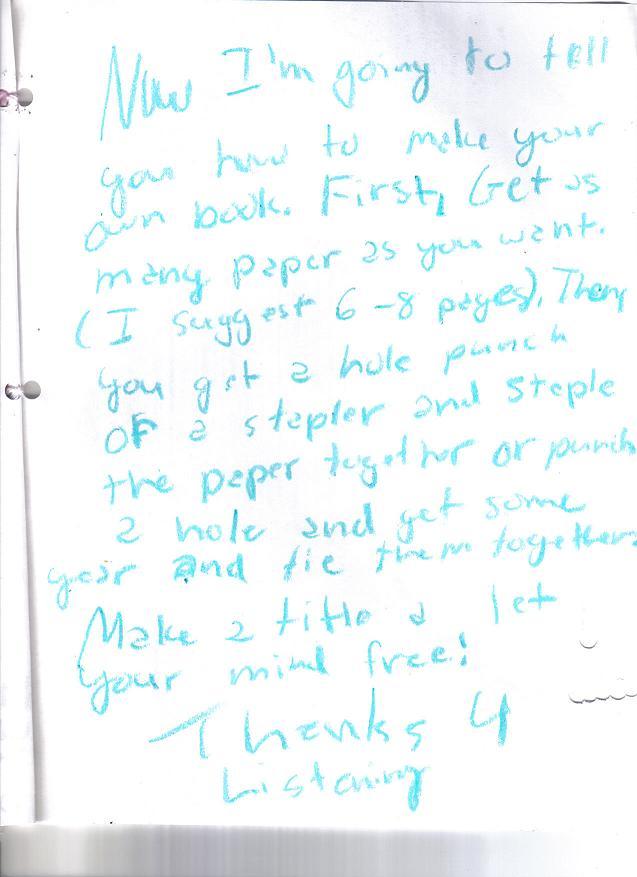 Now I'm going to tell
you how to make your
own book. First, Get as
many paper as you want.
(I suggest 6-8 pages). Then,
you get a hole punch
OF a stapler and staple
the paper together or punch
a hole and get some
year and tie them together.
Make a title a let
your mind free!
Thanks 4
Listening